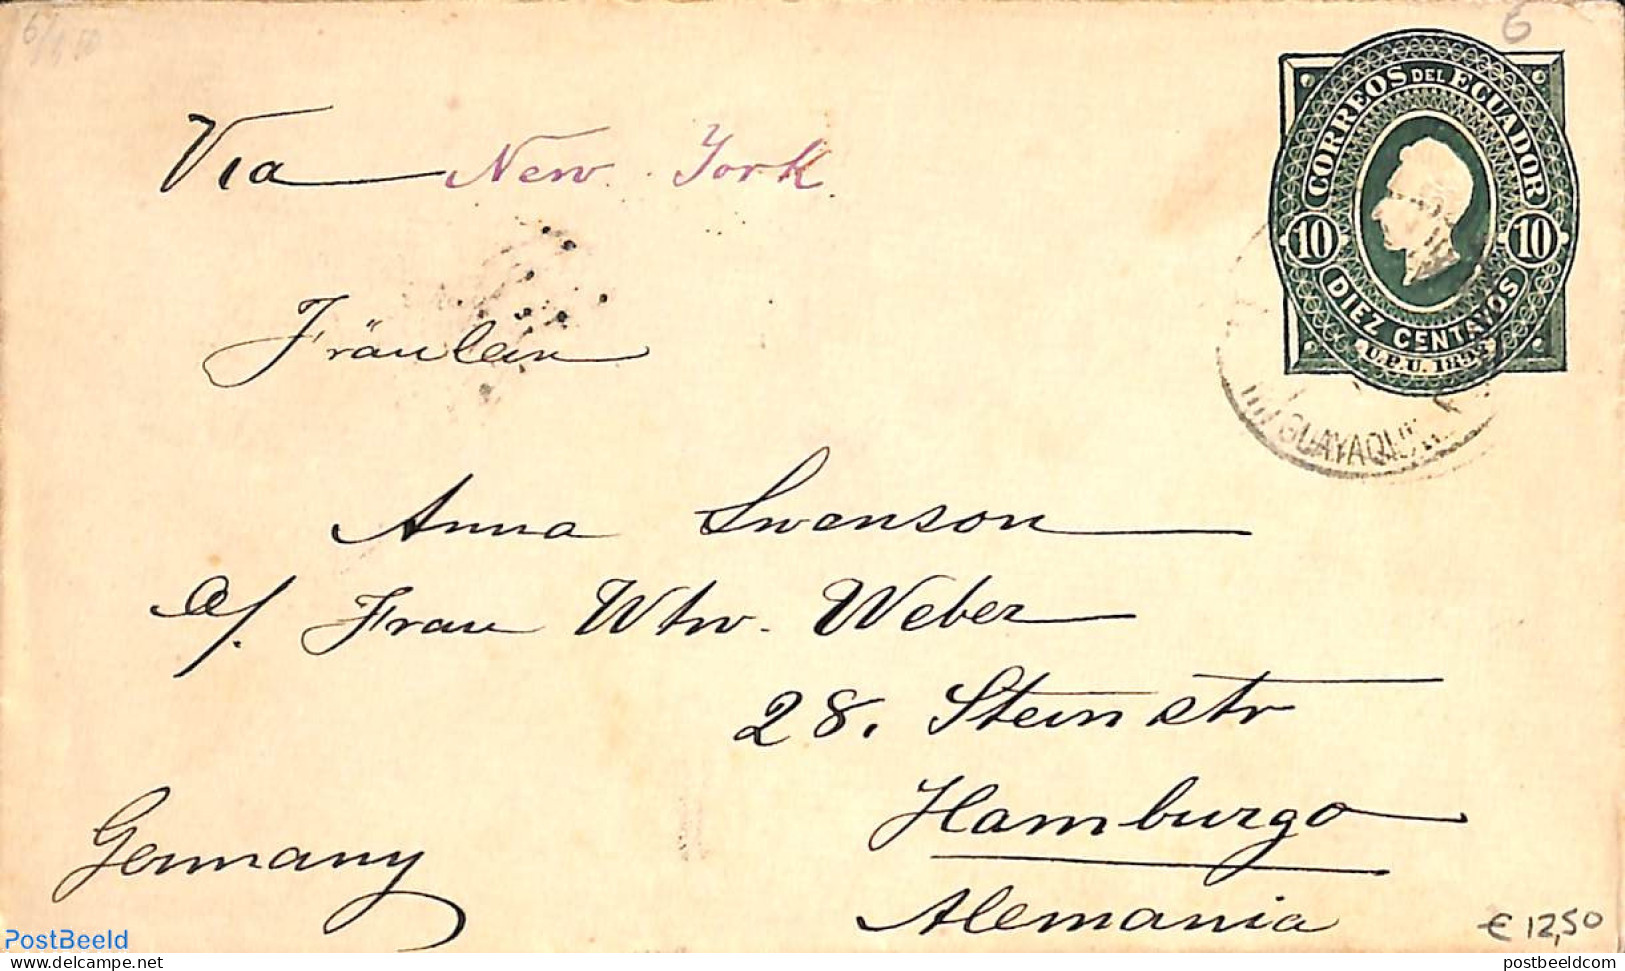 6
CORREOS DEL ECUADOR
10 10
DIEZ CENTAVOS
Via New York
GUAYAQUIL
Fräulein
Anna Swanson
a/. Frau Wtw. Weber
28. Steinstr
Hamburgo
Germany
Alemania
€ 12,50
PostBeeld
postbeeldcom